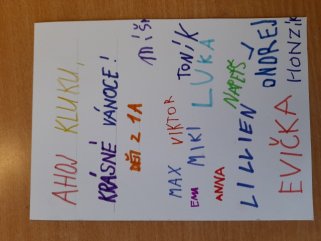 AHOJ KLUKU!
KRÁSNÉ VÁNOCE!
DĚTI Z 1A
MAX VIKTOR TONÍK
EMA MIKI LUKA
ANNA
LILLIEN ONDREJ
EVIČKA HONZÍK